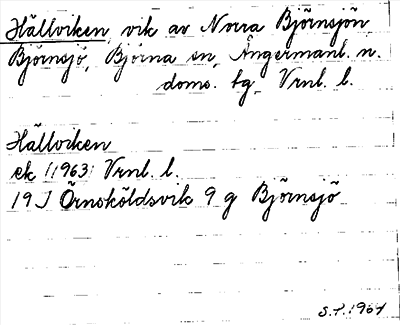 Hällviken, vik av Norra Björnsjön
Björnsjö, Björna sn, Ångermanl. n.
doms. tg, Vrnl. l.
Hällviken
ek (1963) Vrnl. l.
19 J Örnsköldsvik 9 g Björnsjö
S.T. 1964